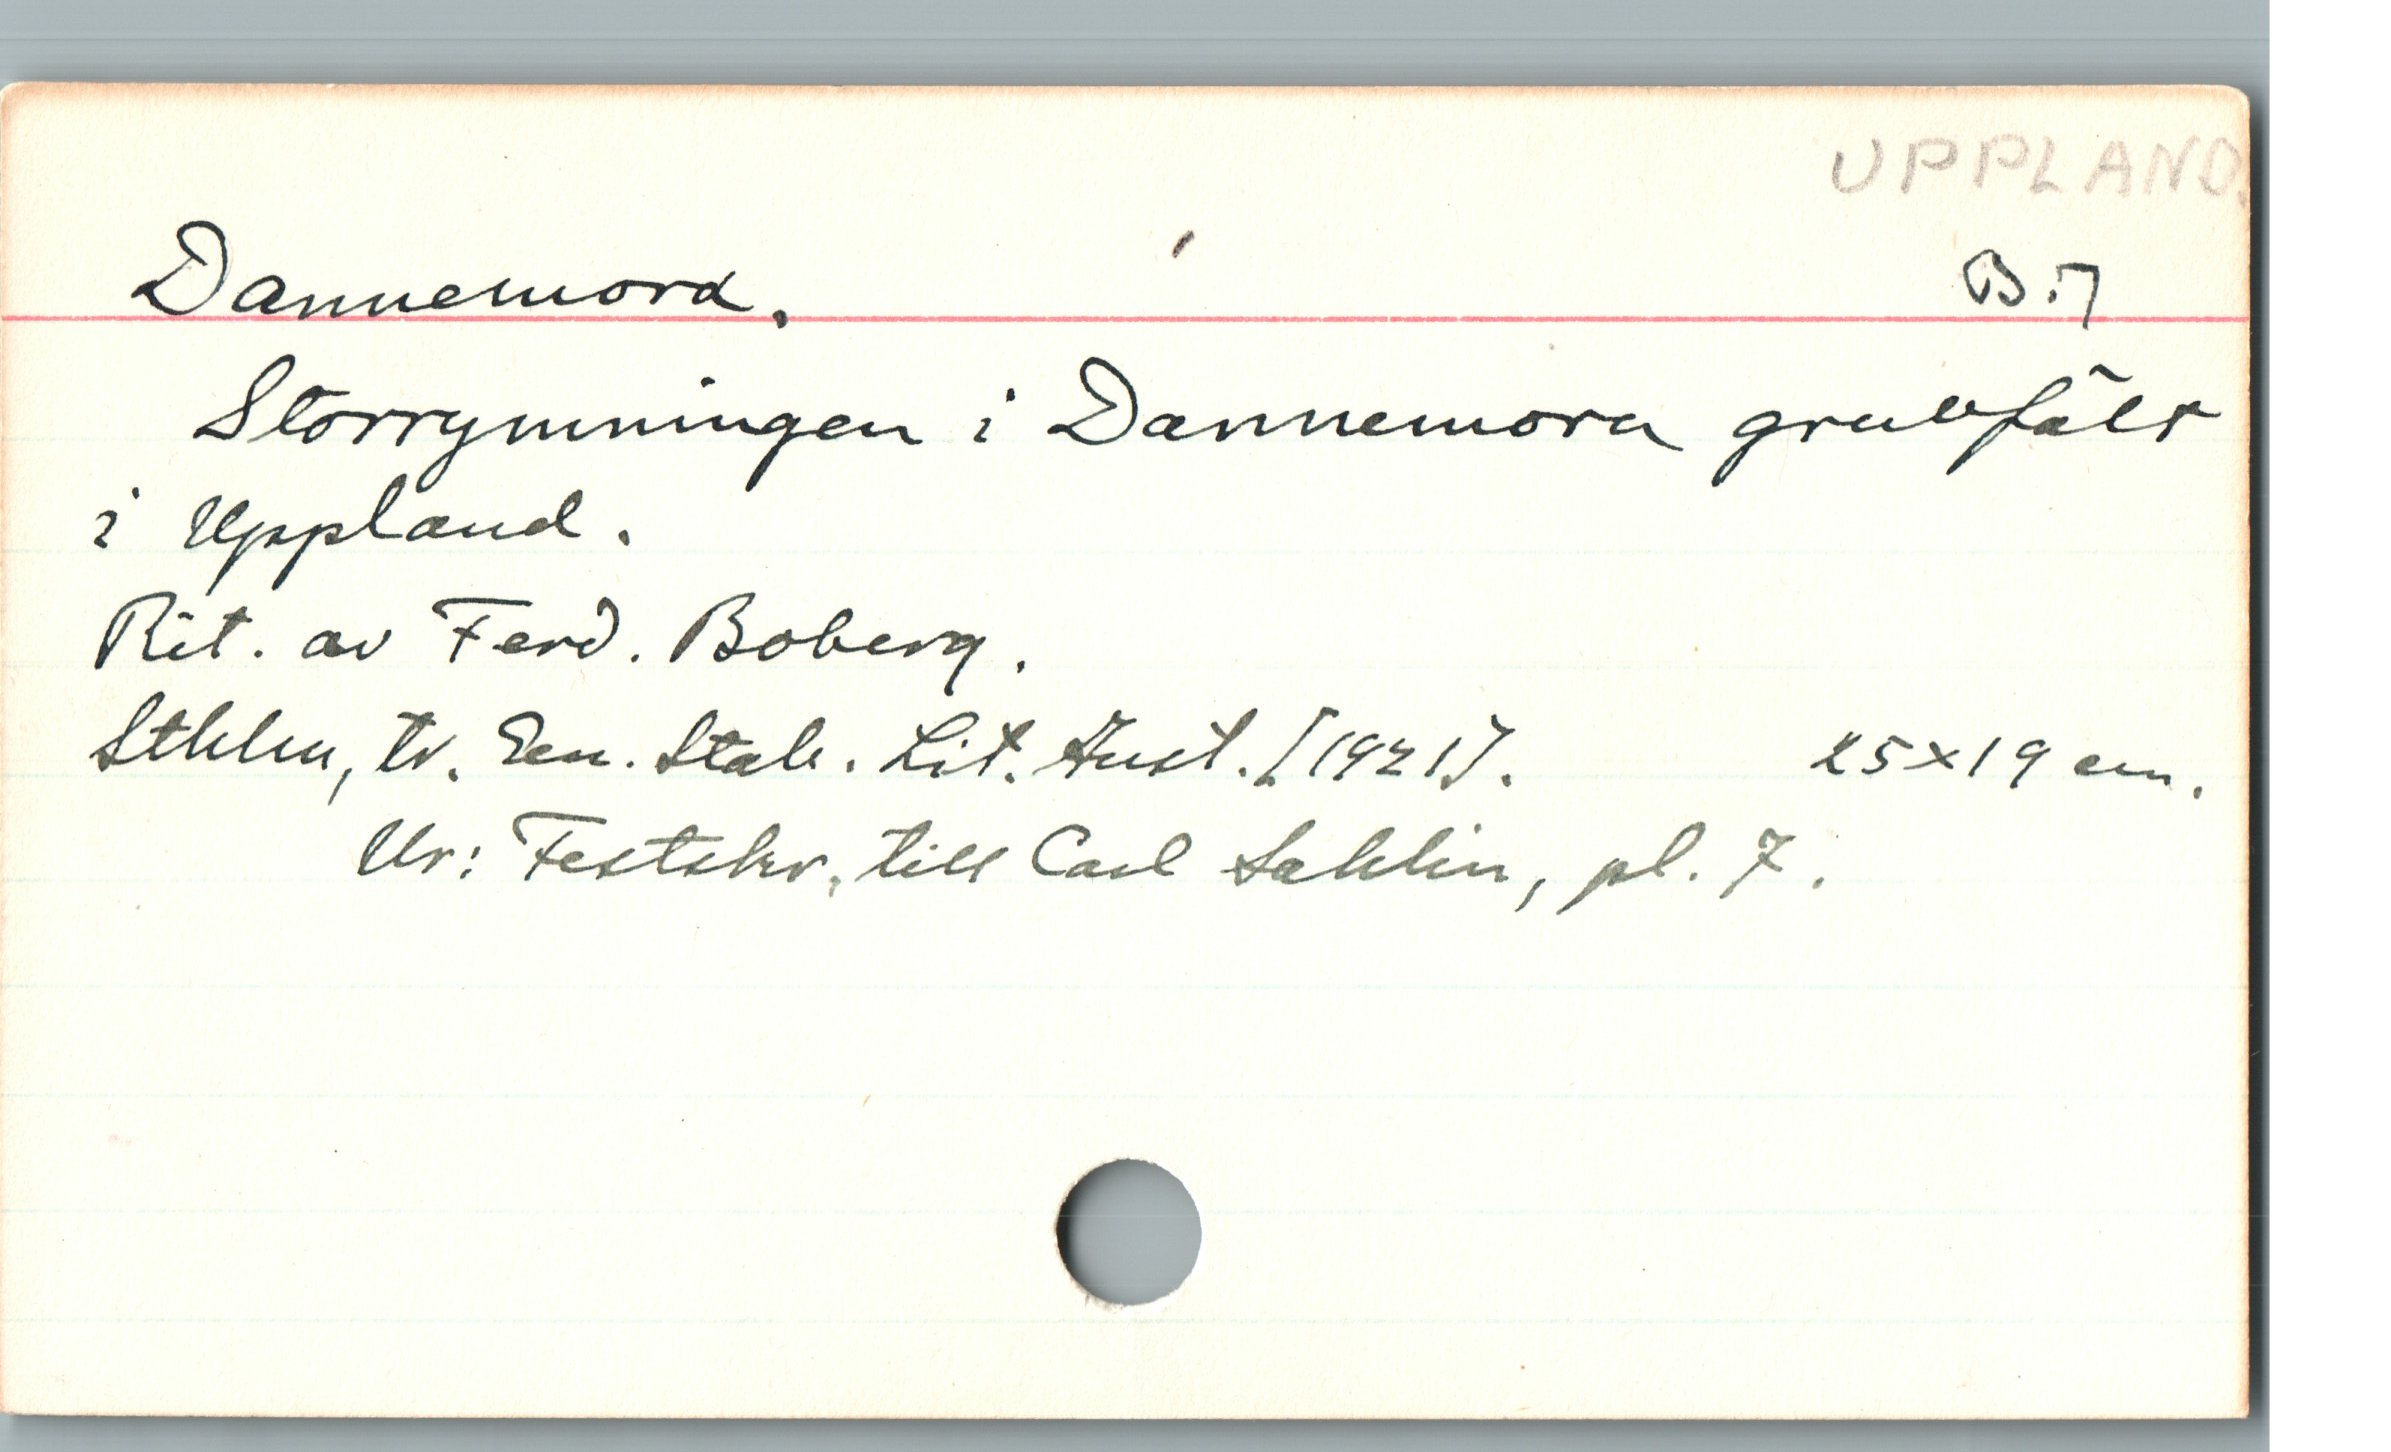 UPPLAND.
Dannemora. B.7
Storrymningen i Dannemora gruvfält
i Uppland.
Rit. av Ferd. Boberg.
Sthlm, tr. Gen. Stab. Lit. Anst. [1921]. 25×19 cm.
Ur: Festskr. till Carl Sahlin, pl. 7.